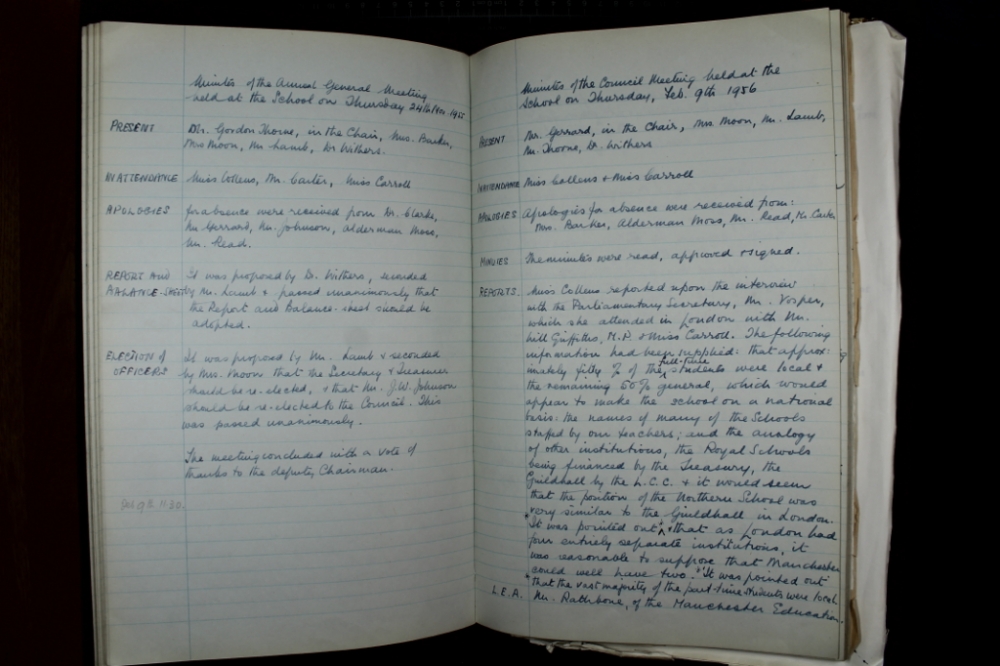 Minutes of the Annual General Meeting
held at the School on Thursday 24th Nov. 1955
PRESENT Mr. Gordon Thorne, in the Chair, Mrs. Barker,
Mrs Moon, Mr Lamb, Dr Withers.
IN ATTENDANCE Miss Collens, Mr. Carter, Miss Carroll
APOLOGIES for absence were received from Dr. Clarke,
Mr Gerrard, Mr. Johnson, Alderman Moss,
Mr. Read.
REPORT AND It was proposed by Dr. Withers, seconded
BALANCE-SHEET by Mr. Lamb & passed unanimously that
the Report and Balance-sheet should be
adopted.
ELECTION of It was proposed by Mr. Lamb & seconded
OFFICERS by Mrs. Moon that the Secretary & Treasurer
should be re-elected, & that Mr. J.W. Johnson
should be re-elected to the Council. This
was passed unanimously.
The meeting concluded with a vote of
thanks to the deputy Chairman.
Minutes of the Council Meeting held at the
School on Thursday, Feb. 9th 1956
PRESENT Mr. Gerrard, in the Chair, Mrs Moon, Mr. Lamb,
Mr. Thorne, Dr. Withers
IN ATTENDANCE Miss Collens & Miss Carroll
APOLOGIES Apologies for absence were received from:
Mrs. Barker, Alderman Moss, Mr. Read, Mr. Carter
MINUTES The minutes were read, approved & signed.
REPORTS Miss Collens reported upon the interview
with the Parliamentary Secretary, Mr. Vosper,
which she attended in London with Mr.
Will Griffiths, M.P. & Miss Carroll. The following
information had been supplied: that approx:
imately fifty % of the full-time students were local &
the remaining 50% general, which would
appear to make the school on a national
basis: the names of many of the Schools
staffed by our teachers; and the analogy
of other institutions, the Royal Schools
being financed by the Treasury, the
Guildhall by the L.C.C. & it would seem
that the position of the Northern School was
very similar to the Guildhall in London.
*It was pointed out * & that as London had
four entirely separate institutions, it
was reasonable to suppose that Manchester
could well have two. * It was pointed out
*that the vast majority of the part-time students were local.
L.E.A. Mr. Rathbone, of the Manchester Education